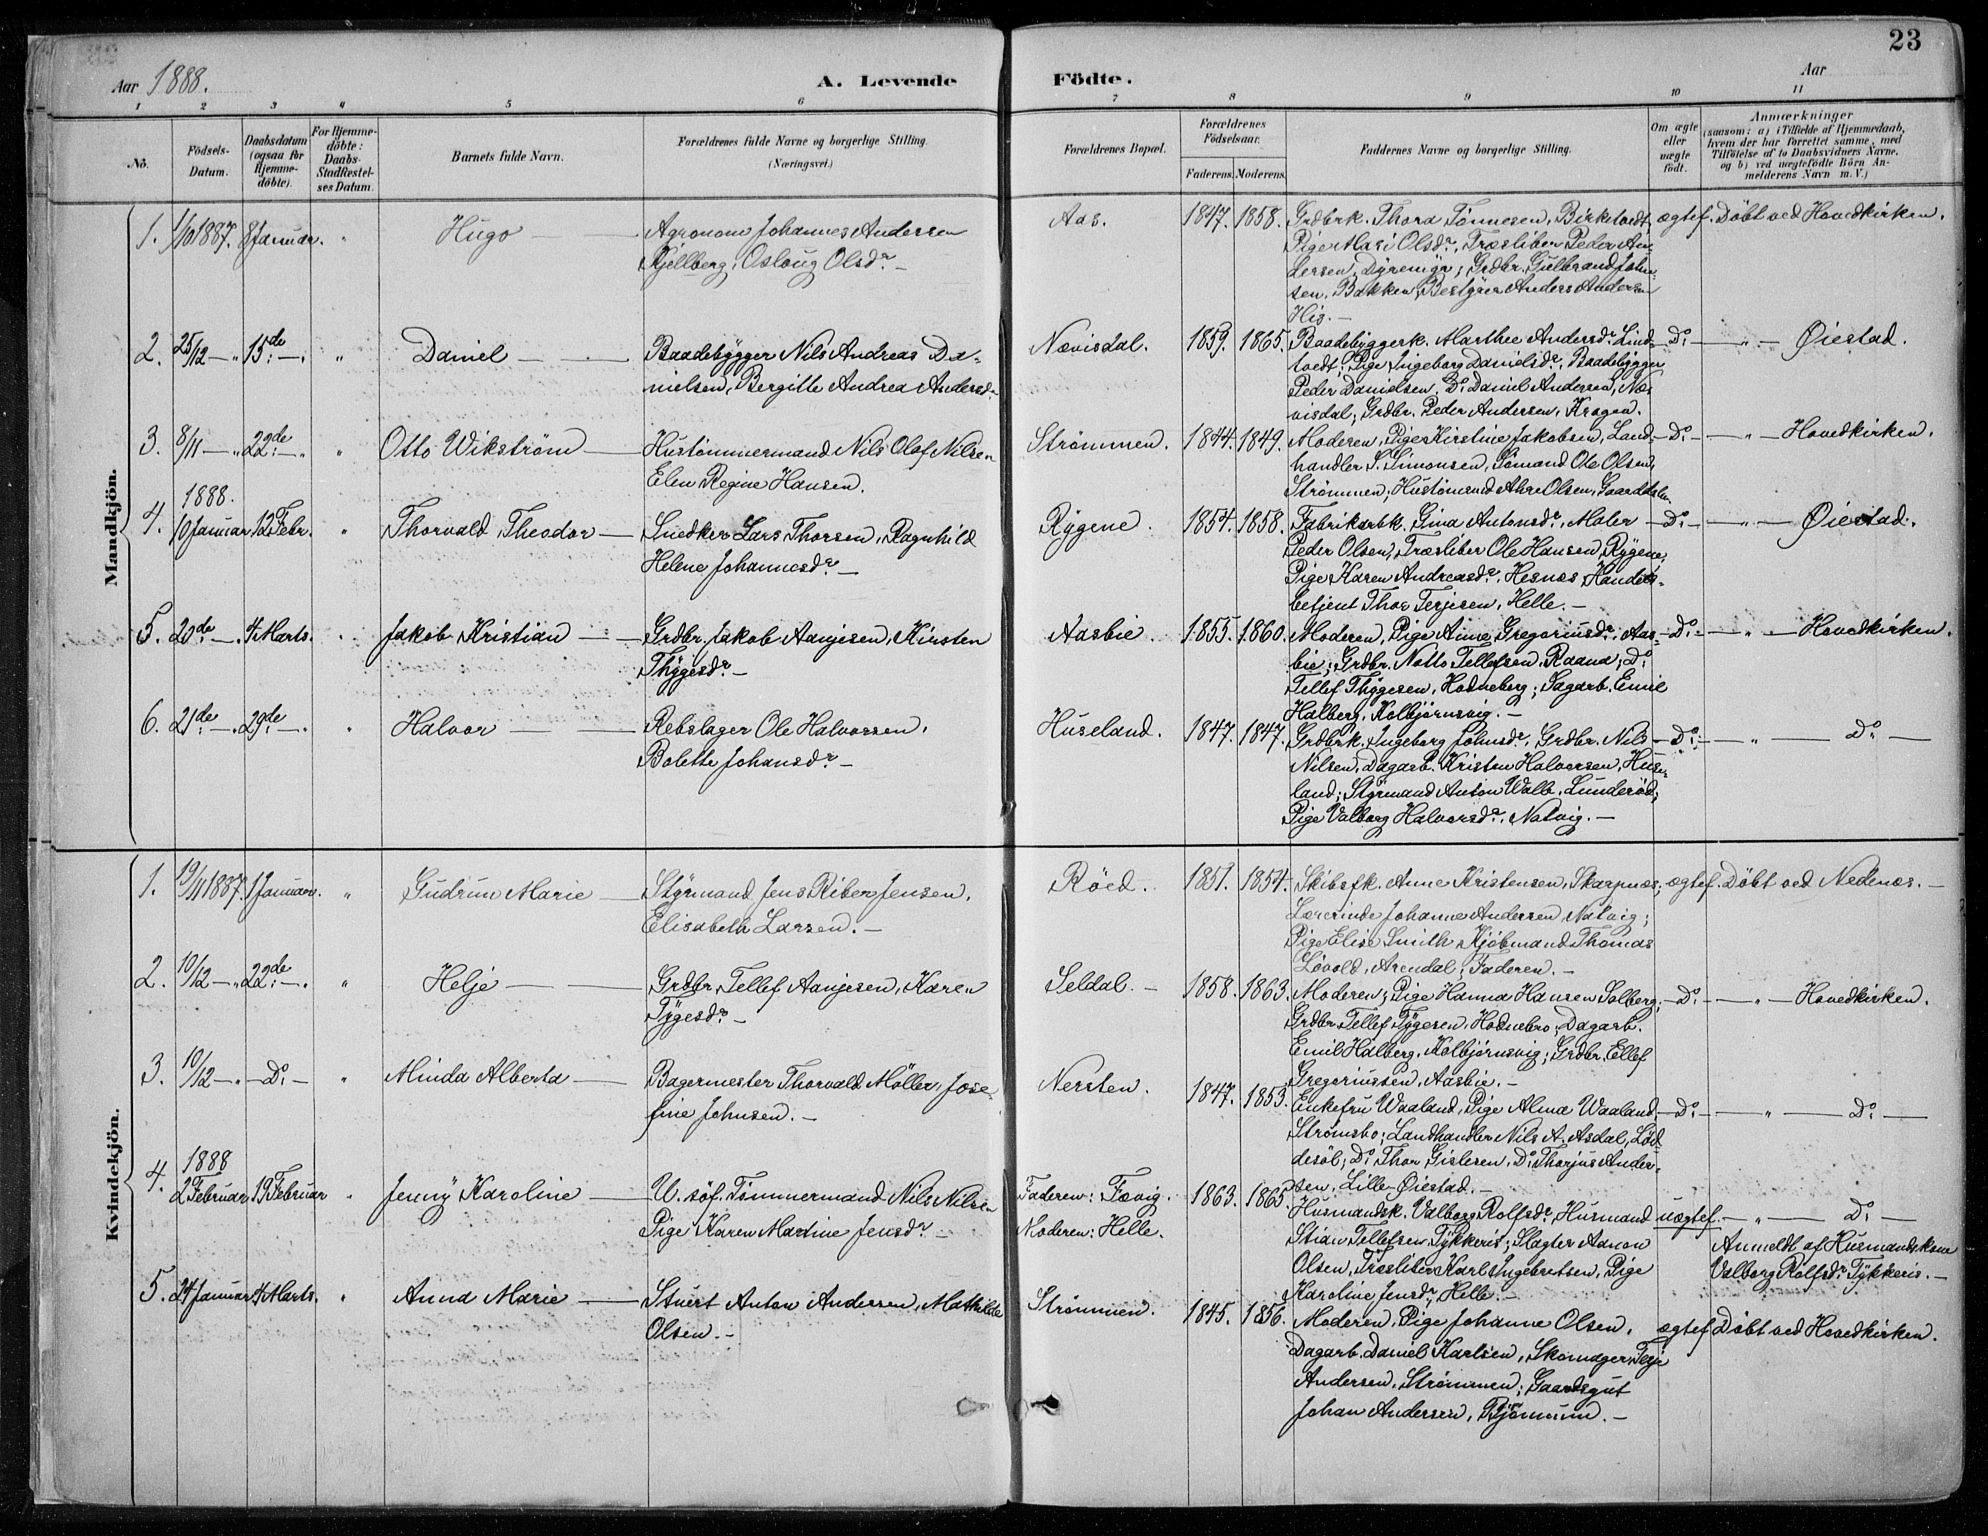 23
Aar 1888.
A. Levende Födte.
Aar
1 2 3 4 5 6 7 8 9 10 11
No.
Födsels-Datum.
Daabsdatum (ogsaa for Hjemme-döbte).
For Hjemme-döbte: Daabs-Stadfæstel-ses Datum.
Barnets fulde Navn.
Forældrenes fulde Navne og borgerlige Stilling.
(Næringsvei.)
Forældrenes Bopæl.
Forældrenes Födselsaar.
Faderens. Moderens.
Faddernes Navne og borgerlige Stilling.
Om ægte eller uægte födt.
Anmærkninger
(saasom: a) i Tilfælde af Hjemmedaab, hvem der har forrettet samme, med Tilföielse af to Daabsvidners Navne. og b) ved uægtefödte Börn An-melderens Navn m. V.)
Mandkjön.
1. 1/10 1887. 8 Januar. " Hugo — Agronom Johannes Andersen
Kjellberg, Osloug Olsdr. —
Aas. 1847. 1858. Grdbrk. Thora Tönnesen, Birketvedt,
Pige Mari Olsdr., Træsliber Peder An-
dersen, Dyremyr; Grdbr. Gulbrand John-
sen, Bakken; Bestyrer Anders Andersen
His. —
ægtef. Döbt ved Hovedkirken.
2. 25/12 — " 15de — " " Daniel — Baadebygger Nils Andreas Da-
nielsen, Bergitte Andrea Andersdr.
Nævisdal. 1859. 1865. Baadebyggerk. Marthe Andersdr. Lind-
tvedt; Pige Ingeborg Danielsdr., Baadebygger
Peder Danielsen, Do. Daniel Andersen, Næ-
visdal; Grdbr. Peder Andersen, Kragen.
— Do. — " — Øiestad.
3. 8/11 — " 22de — " " Otto Wikström — Hustömmermand Nils Olof Nilsen
Elen Regine Hansen.
Strömmen. 1844. 1849. Moderen, Pige Kirstine Jakobsen, Land-
handler S. Simonsen, Sömand Ole Olsen,
Strömmen; Hustömmd Olsen, Gaarddalen
— Do. — " — Hovedkirken.
1888.
4. 10 Januar 12 Febr. " Thorvald Theodor — Snedker Lars Thorsen, Ragnhild
Helene Johannesdr. —
Rygene. 1854. 1858. Fabrikarbk. Gina Antonsdr., Maler
Peder Olsen, Træsliber Ole Hansen, Rygene,
Pige Karen Andreasdr., Hesnes, Handels-
betjent Thor Terjesen, Helle. —
— Do. — " — Øiestad.
5. 20de — " 4 Marts. " Jakob Kristian — Grdbr. Jakob Aanjesen, Kirsten
Thygesdr. —
Aasbie. 1855. 1860. Moderen, Pige Anne Gregoriusdr., Aas-
bie; Grdbr. Notto Tellefsen, Raana; Do.
Tellef Thygesen, Hodneberg; Sagarb. Emil
Halberg, Kolbjörnsvig. —
— Do. — " — Hovedkirken.
6. 21de — " 29de — " " Halvor — Rebslager Ole Halvorsen,
Bolette Johansdr. —
Huseland. 1847. 1847. Grdbrk. Ingeborg Johnsdr., Grdbr. Nils
Nilsen, Dagarb. Kristen Halvorsen, Huse-
land; Styrmand Anton Walle, Lunderöd;
Pige Valborg Halvorsdr., Natvig. —
— Do. — " — Do. —
Kvindekjön.
1. 19/11 1887. 1 Januar. " Gudrun Marie — Styrmand Jens Riber Jensen,
Elisabeth Larsen. —
Röed. 1851. 1854. Skibsfk. Anne Kristensen, Skarpnæs;
Lærerinde Johanne Andersen, Natvig;
Pige Elise Smith, Kjöbmand Thomas
Lövold, Arendal; Faderen. —
ægtef. Döbt ved Nedenæs. —
2. 10/12 — " 22de — " " Helje — Grdbr. Tellef Aanjesen, Karen
Tygesdr. —
Seldal. — 1858. 1863. Moderen; Pige Hanna Hansen Solberg;
Grdbr. Tellef Tygesen, Hodnebro; Dagarb.
Emil Halberg, Kolbjörnsvig; Grdbr. Ellef
Gregoriussen, Aasbie. —
— Do. — " — Hovedkirken.
3. 10/12 — " — Do. — " Minda Alberta — Bagermester Thorvald Möller, Jose-
fine Johnsen. —
Nersten. 1847. 1853. Enkefru Waaland, Pige Alma Waaland,
Strömsbo; Landhandler Nils A. Asdal, Löd-
desöl; Do. Thor Gislesen, Do. Thorjus Ander-
sen, Lille-Øiestad. —
— Do. — " — Do. —
1888
4. 2 Februar 19 Februar " Jenny Karoline — U. söf. Tömmermand Nils Nilsen
Pige Karen Martine Jensdr. —
Faderen: Fævig.
Moderen: Helle.
1863. 1865. Husmandsk. Valborg Rolfsdr., Husmand
Stian Tellefsen, Tykkeris; Slagter Aanon
Olsen, Træsliber Karl Ingebretsen, Pige
Karoline Jensdr., Helle. —
uægtef. — " — Do. —
Anmeldt af Husmandskone
Valborg Rolfsdr. Tykkeris. —
5. 24 Januar 4 Marts. " Anna Marie — Stuert Anton Andersen, Mathilde
Olsen. —
Strömmen. 1845. 1856. Moderen, Pige Johanne Olsen,
Dagarb. Daniel Karlsen, Skomager Terje
Andersen, Strömmen; Gaardsgut
Johan Andersen, Bjömsund. —
ægtef. Döbt ved Hovedkirken.